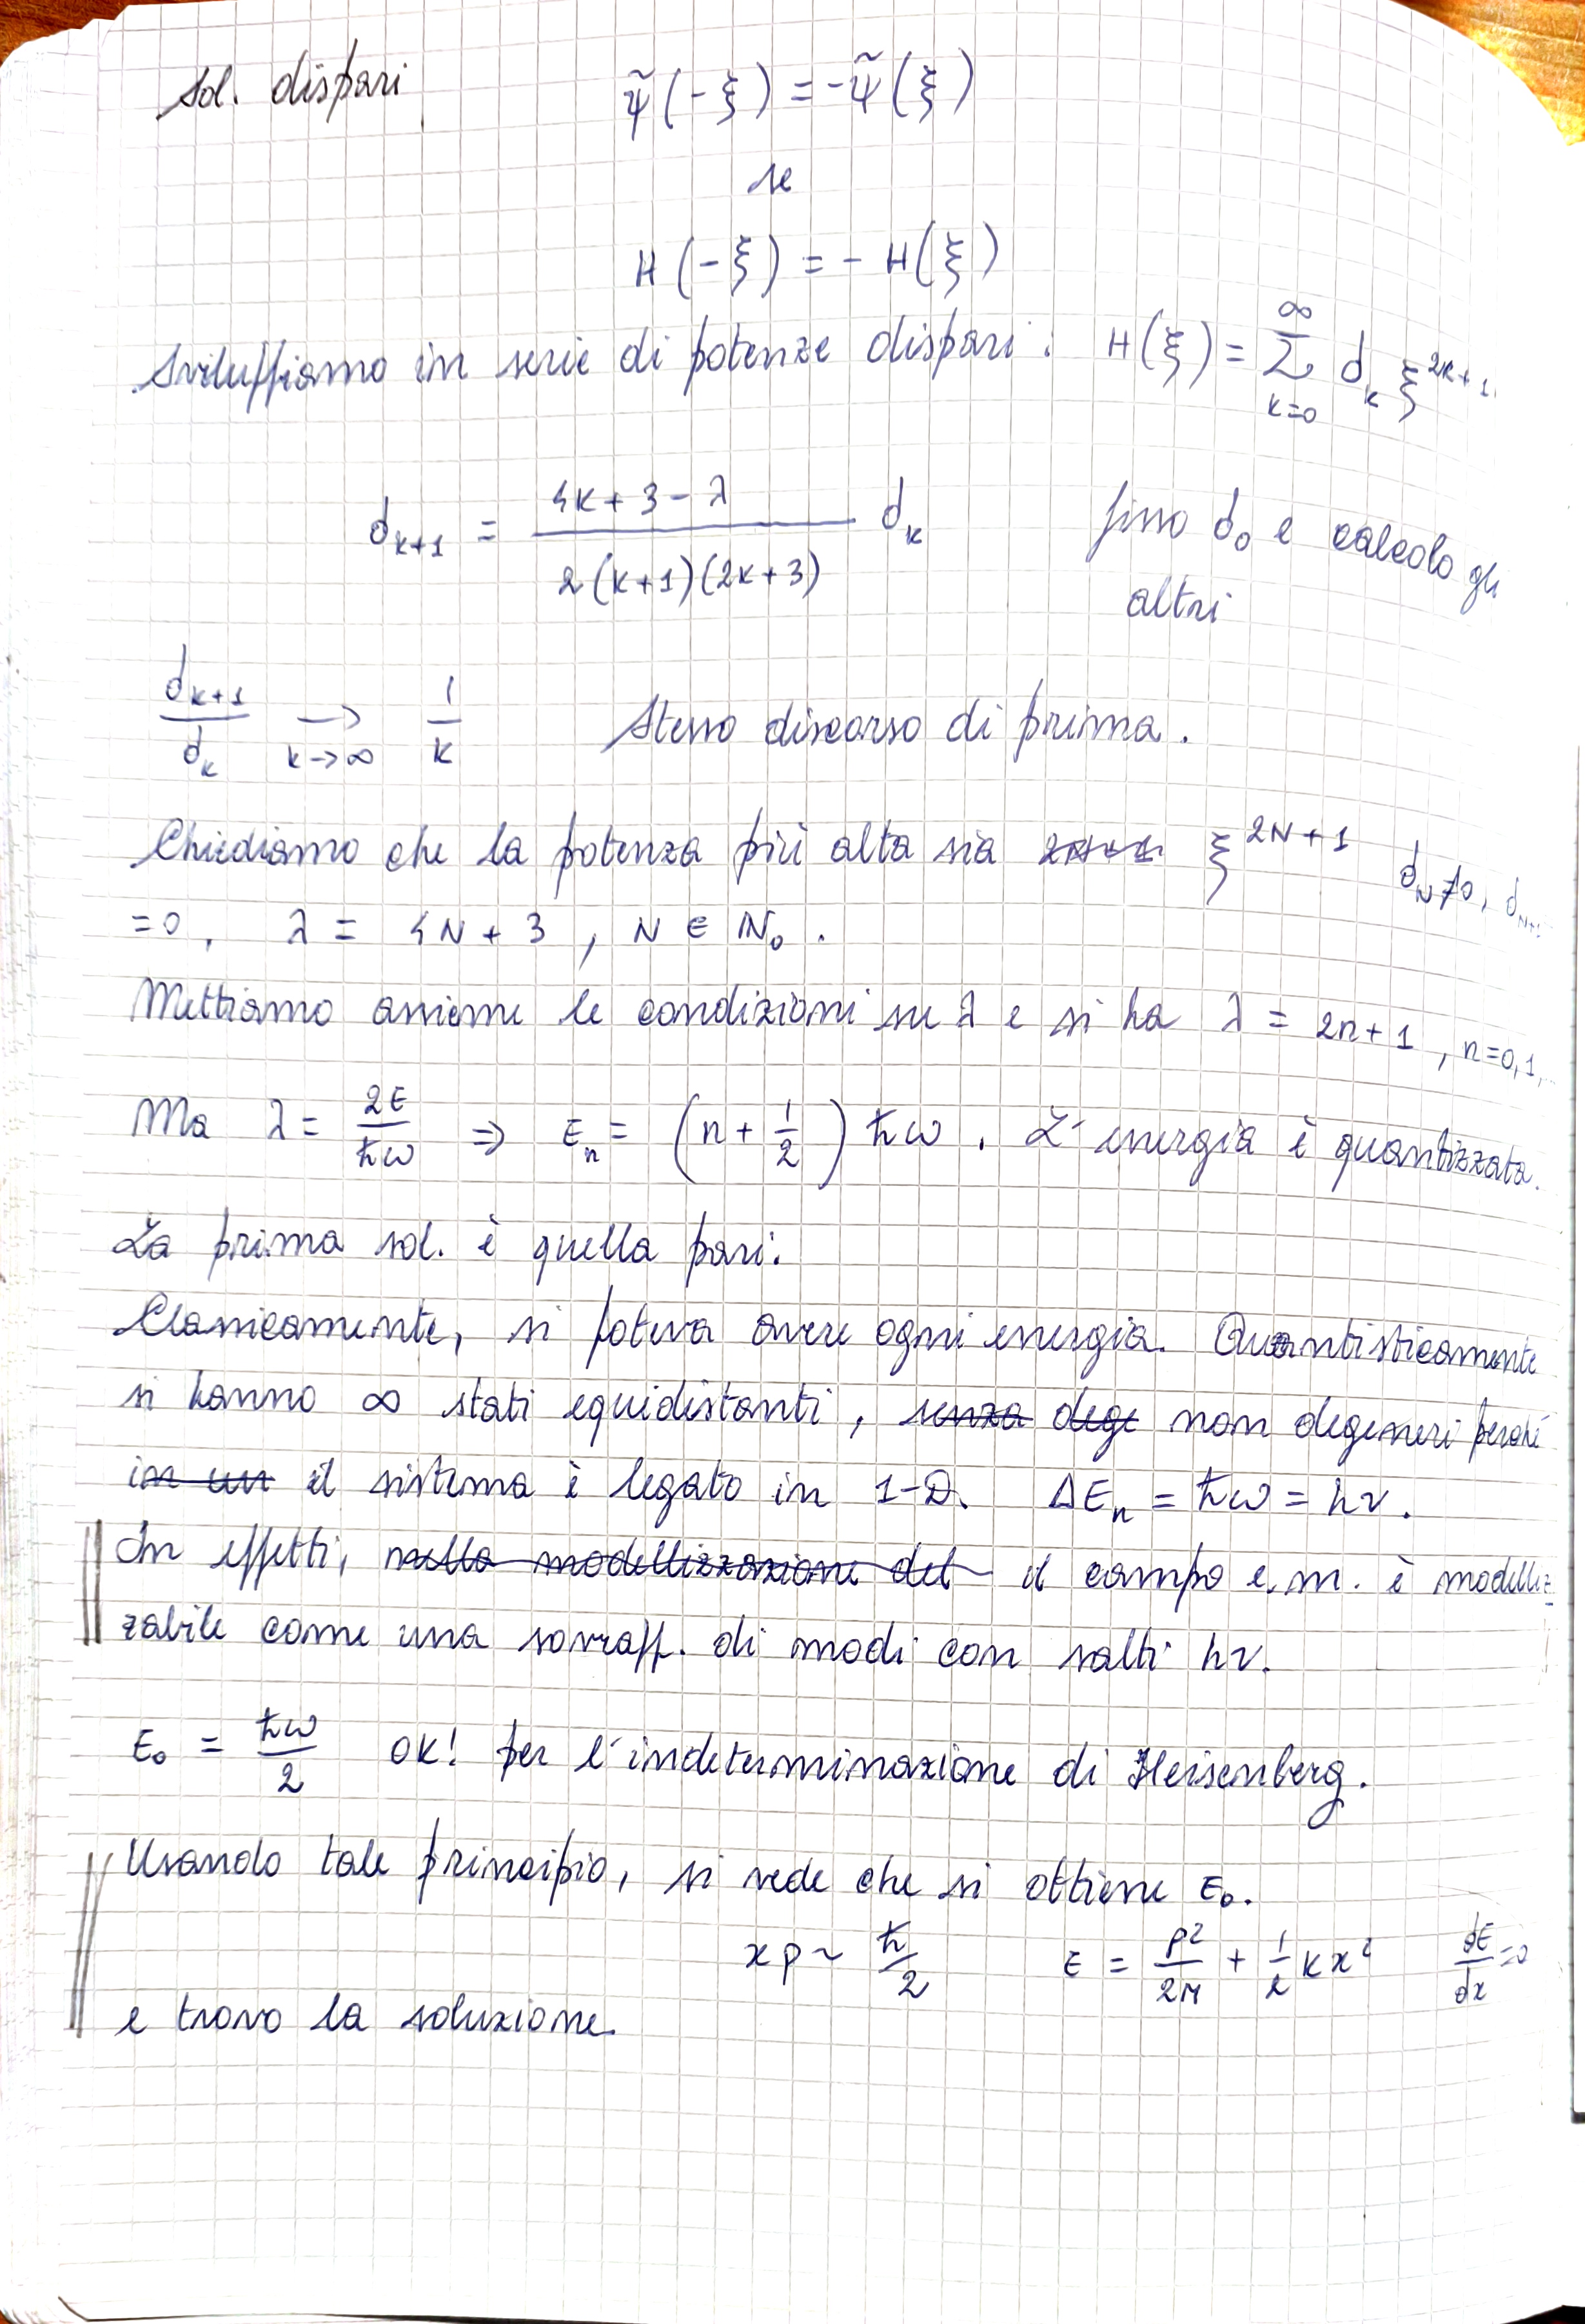 sol. dispari ψ̃(-ξ) = -ψ̃(ξ)
se
H(-ξ) = - H(ξ)
Sviluppiamo in serie di potenze dispari: H(ξ) = Σ_{k=0}^{∞} d_k ξ^{2k+1}
d_{k+1} = \frac{4k+3-λ}{2(k+1)(2k+3)} d_k fisso d_0 e calcolo gli
altri
\frac{d_{k+1}}{d_k} →_{k→∞} \frac{1}{k} Stesso discorso di prima.
Chiediamo che la potenza più alta sia ξ^{2N+1} d_N ≠ 0, d_{N+1}
=0, λ = 4N+3, N ∈ ℕ_0.
Mettiamo assieme le condizioni su λ e si ha λ = 2n+1, n=0,1,..
Ma λ = \frac{2E}{ħω} ⇒ E_n = (n + \frac{1}{2}) ħω. L'energia è quantizzata.
La prima sol. è quella pari.
Classicamente, si poteva avere ogni energia. Quantisticamente
si hanno ∞ stati equidistanti, ~~senza dege~~ non degeneri perché
~~in un~~ il sistema è legato in 1-D. ΔE_n = ħω = hν.
In effetti, ~~nella modellizzazione del~~ il campo e.m. è modelliz
zabile come una sovrapp. di modi con salti hν.
E_0 = \frac{ħω}{2} OK! per l'indeterminazione di Heisenberg.
Usando tale principio, si vede che si ottiene E_0.
xp ~ \frac{ħ}{2} E = \frac{p²}{2M} + \frac{1}{2}kx² \frac{dE}{dx}=0
e trovo la soluzione.